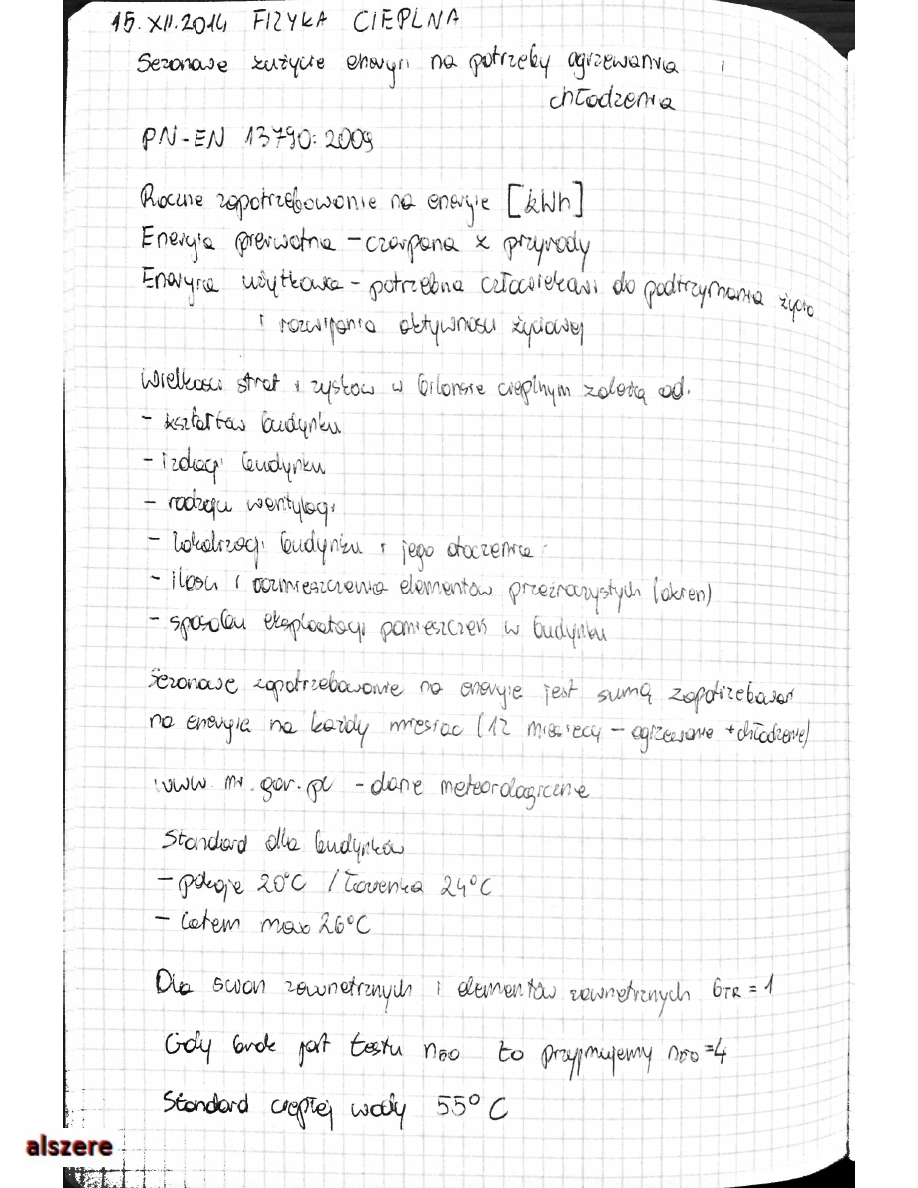 15.XII.2014 FIZYKA CIEPLNA
Sezonowe zużycie energii na potrzeby ogrzewania i
chłodzenia
PN-EN 13790:2009
Roczne zapotrzebowanie na energię [kWh]
Energia pierwotna - czerpana z przyrody
Energia użytkowa - potrzebna człowiekowi do podtrzymania życia
i rozwijania aktywności życiowej
Wielkości strat i zysków w bilansie cieplnym zależą od:
- kształtów budynku
- izolacji budynku
- rodzaju wentylacji
- lokalizacji budynku i jego otoczenia
- ilości i rozmieszczenia elementów przeźroczystych (okien)
- sposobu eksploatacji pomieszczeń w budynku
Sezonowe zapotrzebowanie na energię jest sumą zapotrzebowań
na energię na każdy miesiąc (12 miesięcy - ogrzewanie + chłodzenie)
www.mi.gov.pl - dane meteorologiczne
Standard dla budynków
- pokoje 20°C / łazienka 24°C
- latem max 26°C
Dla ścian zewnętrznych i elementów zewnętrznych bTR = 1
Gdy brak jest testu n50 to przyjmujemy n50 = 4
Standard ciepłej wody 55°C
alszere